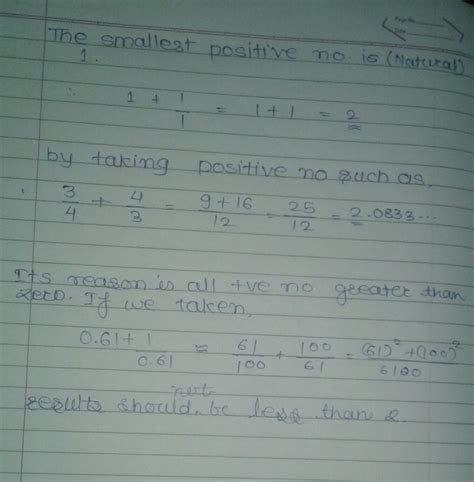 The smallest positive no. is (Natural)
1.
∴ 1 + 1/1 = 1 + 1 = 2
by taking positive no such as,
3/4 + 4/3 = 9+16/12 = 25/12 = 2.0833...
Its reason is all +ve no greeater than
zero. If we taken,
0.61 + 1/0.61 ≈ 61/100 + 100/61 = (61)² + (100)²/6100
not
results should be less than 2.